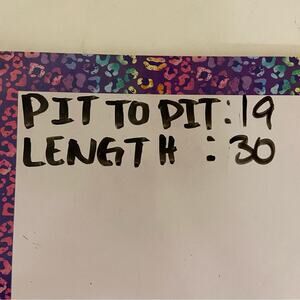 PIT TO PIT: 19
LENGTH : 30